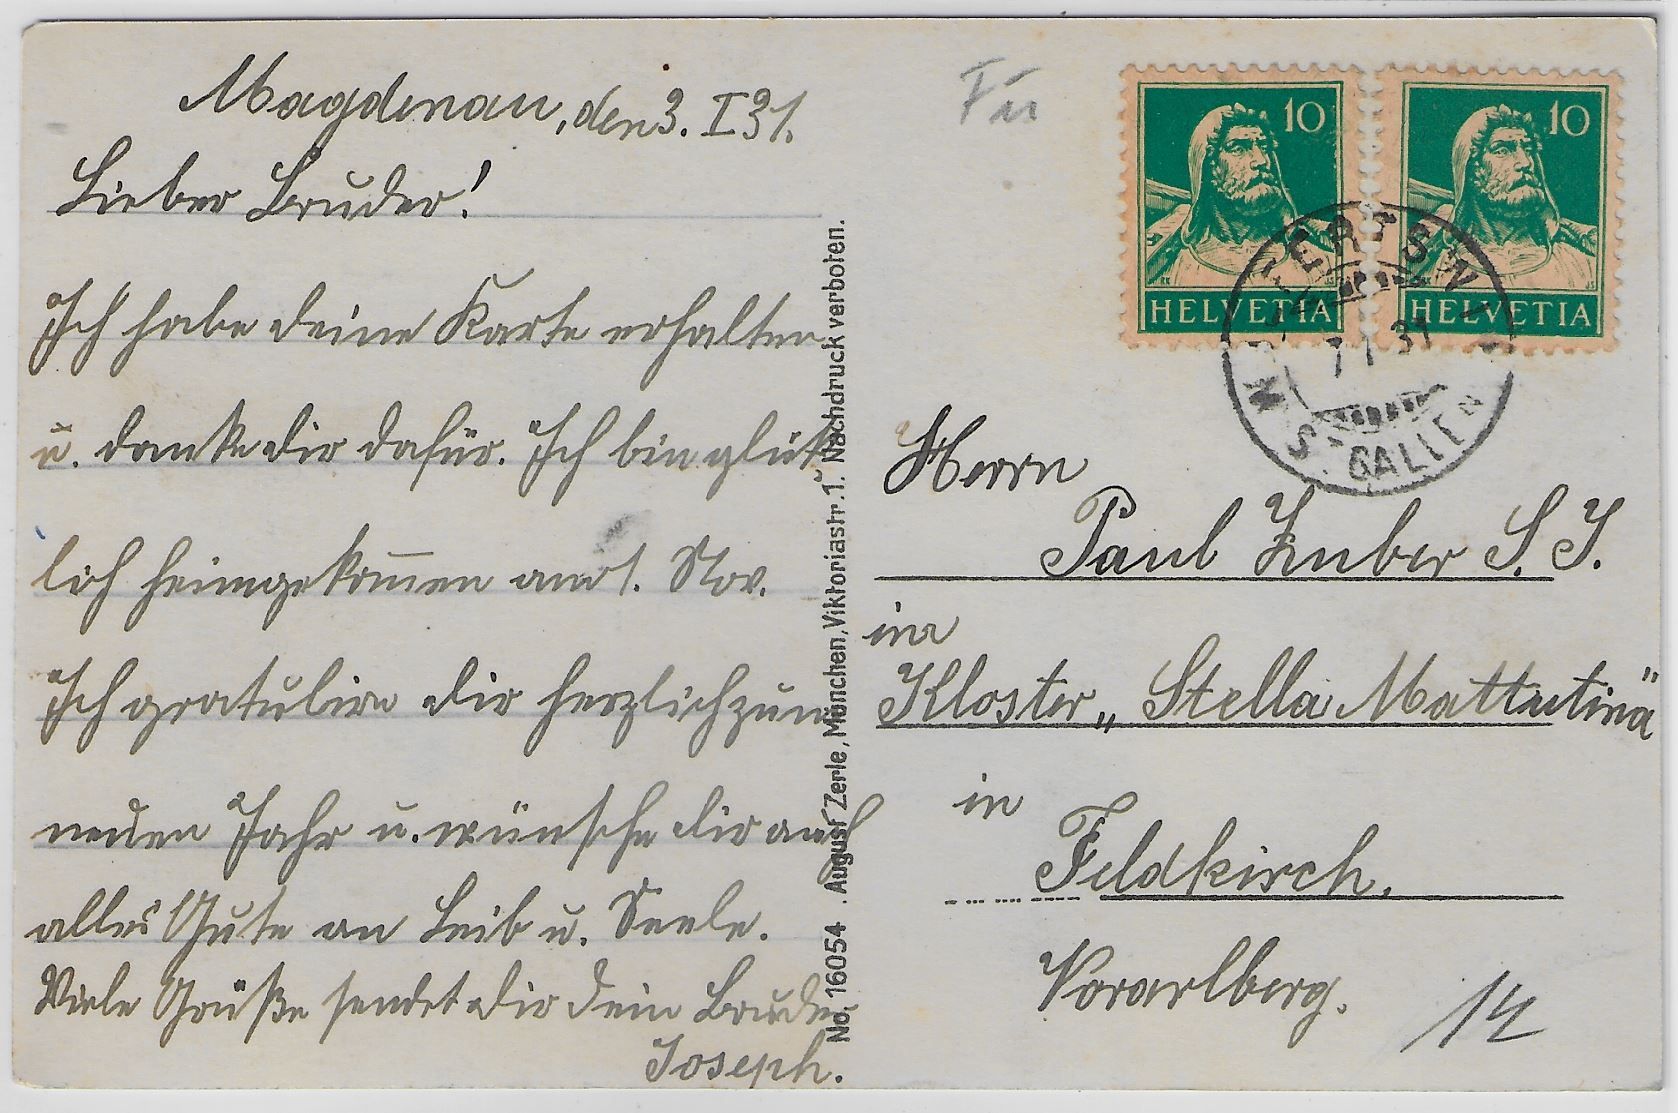 Magdenau, den 3. I 31.
Lieber Bruder!
Ich habe deine Karte erhalten
u. danke dir dafür. Ich bin glük-
lich heimgekom̅en am 1. Nov.
Ich gratulire dir herzlich zum
neuen Jahr u. wünsche dir auch
alles Gute an Leib u. Seele.
Viele Grüße sendet dir dein Bruder
Joseph.
No. 16054 . August Zerle, München, Viktoriastr. 1. Nachdruck verboten.
10
HELVETIA
10
HELVETIA
ST. GALLEN
Herrn
Paul Zuber S. J.
im
Kloster „Stella Mattutina"
in
Feldkirch.
Vorarlberg.
14